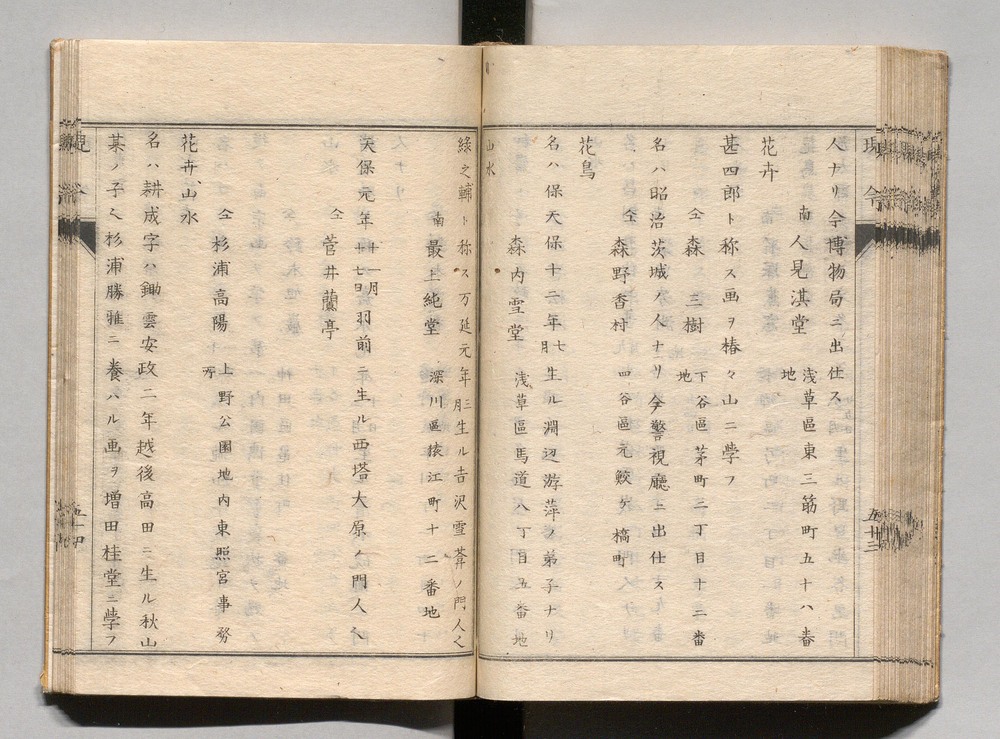 人ナリ今博物局ニ出仕ス
南 人見淇堂 浅草區東三筋町五十八番地
花卉
甚四郎ト称ス画ヲ椿々山ニ學フ
仝 森三樹 下谷區茅町二丁目十二番地
名ハ昭治茨城ノ人ナリ今警視廳ニ出仕ス
仝 森野香村 四谷區元鮫ケ橋町
花鳥
名ハ保天保十二年七月生ル淵辺游萍ノ弟子ナリ
森内雪堂 浅草區馬道八丁目五番地
山水
現今
五十三
緑之輔ト称ス万延元年三月生ル吉沢雪葊ノ門人ナリ
南 最上純堂 深川區猿江町十二番地
天保元年一月七日羽前ニ生ル西塔大原ノ門人ナリ
仝 菅井蘭亭
仝 杉浦高陽 上野公園地内東照宮事務所
花卉、山水
名ハ耕成字ハ鋤雲安政二年越後高田ニ生ル秋山
某ノ子ナリ杉浦勝雅ニ養ハル画ヲ増田桂堂ニ學フ
五十四